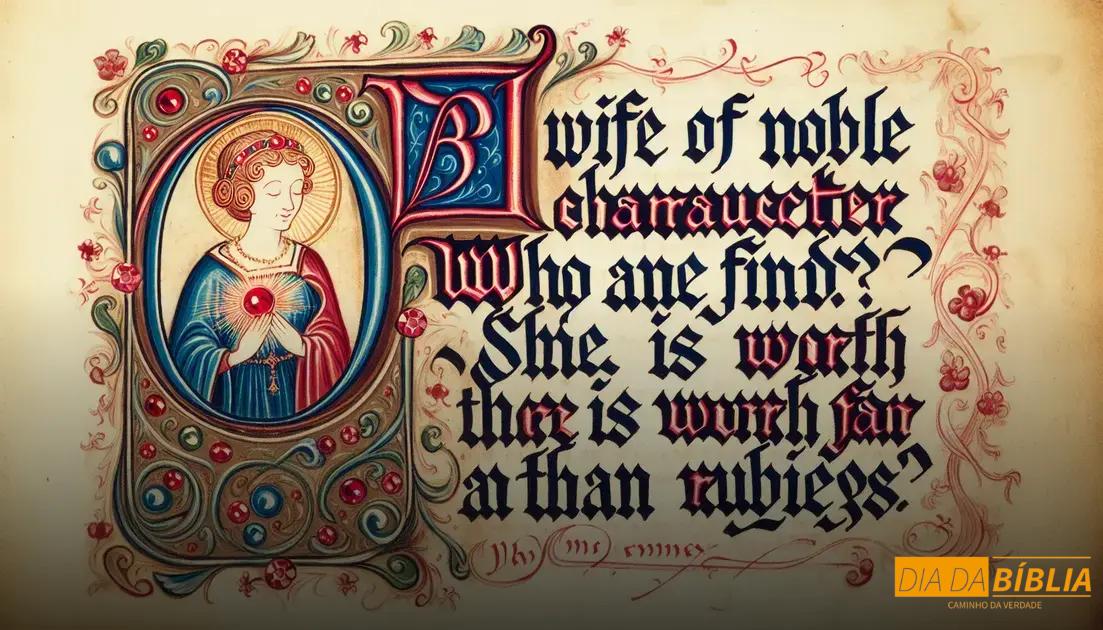 B wife of noble
charrauccter
Who ane find??
Shie is worth
there is wurrh fan
an than rubiegs?
DIA DA BÍBLIA
CAMINHO DA VERDADE